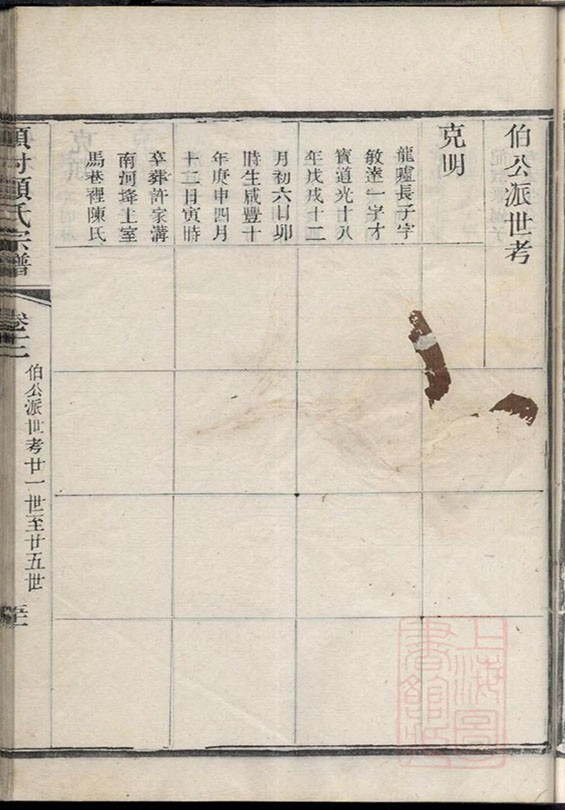 伯公派世考
克明
龍驢長子字
敏達一字才
寶道光十八
年戊戌十二
月初六日卯
時生咸豐十
年庚申四月
十二日寅時
卒葬許家溝
南河塝上室
馬巷裡陳氏
項村項氏宗譜
卷十二
伯公派世考廿一世至廿五世
上海圖書館藏